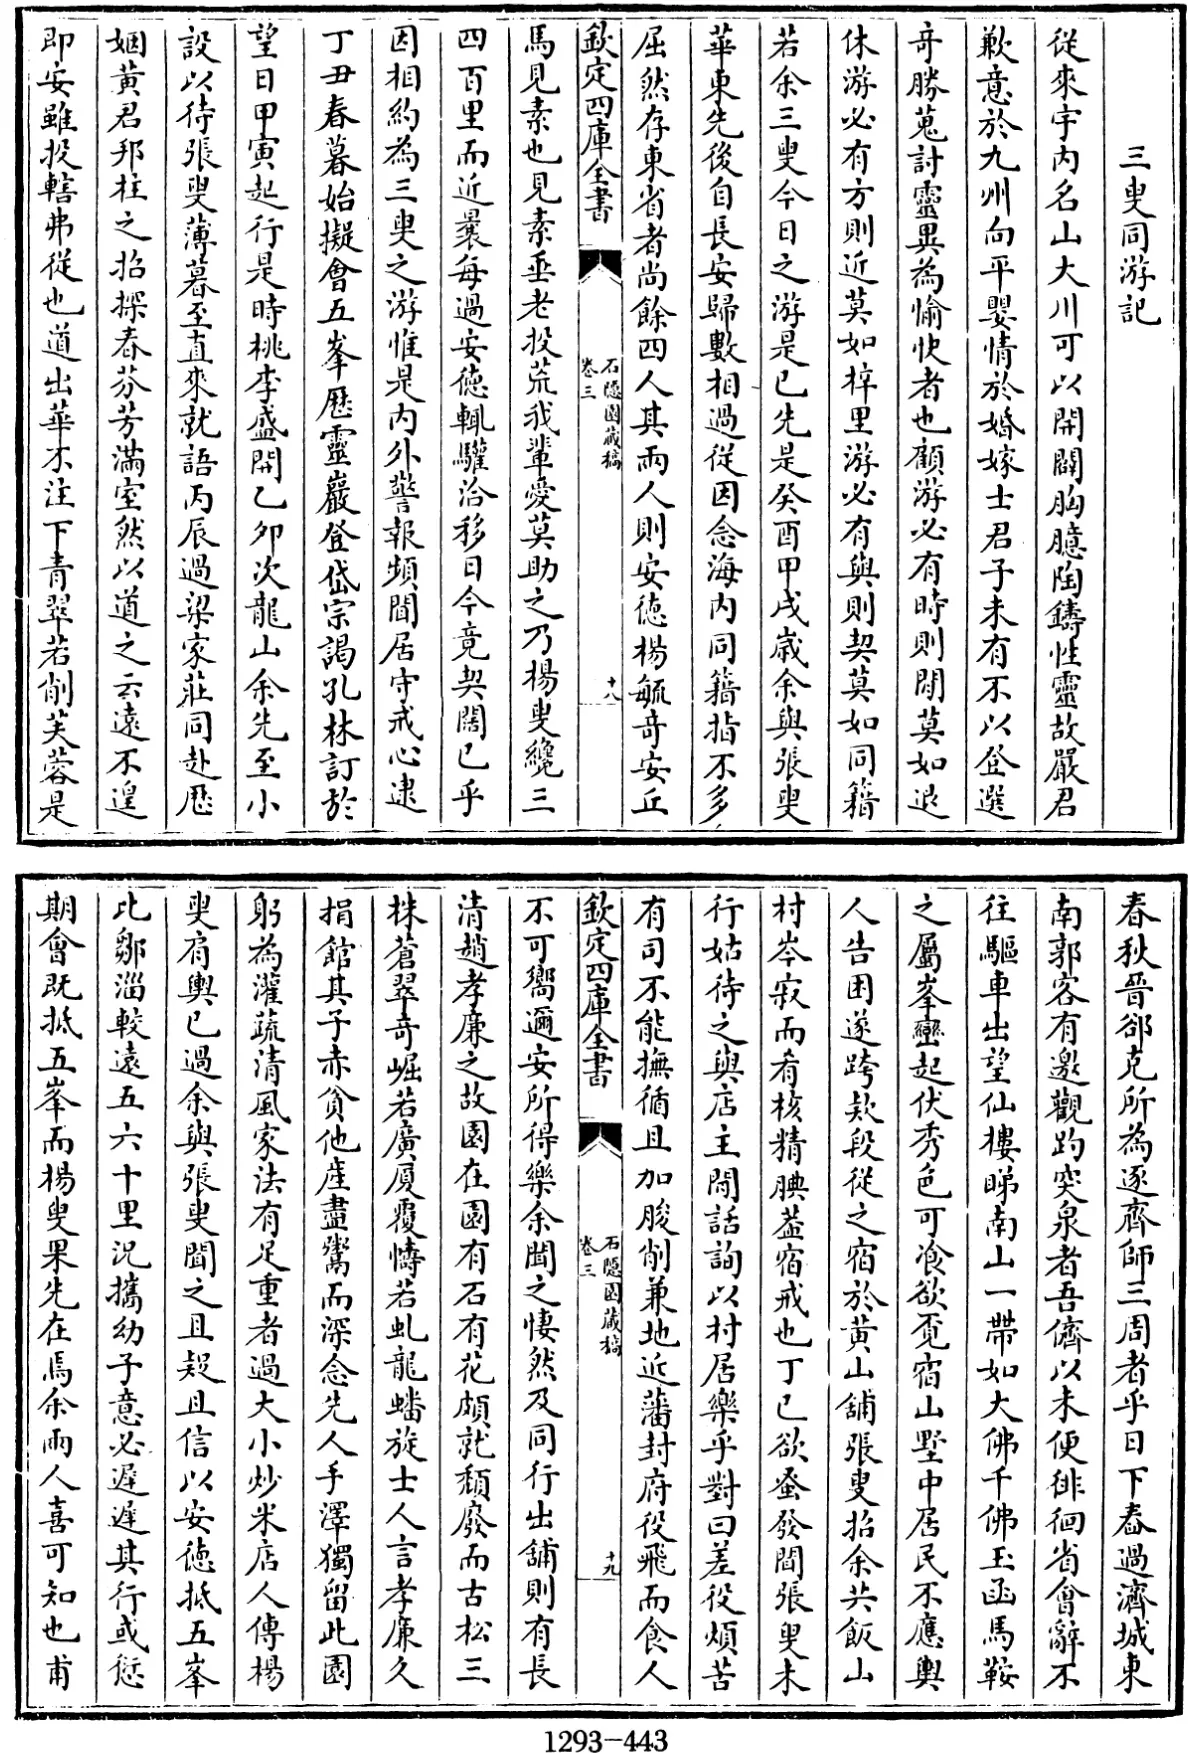 三叟同游記
從來宇内名山大川可以開闢胸臆陶鑄性靈故嚴君
歉意於九州向平嬰情於婚嫁士君子未有不以登選
奇勝蒐討靈異為愉快者也顧游必有時則閒莫如退
休游必有方則近莫如梓里游必有與則契莫如同籍
若余三叟今日之游是已先是癸酉甲戌歲余與張叟
華東先後自長安歸數相過從因念海内同籍指不多
屈然存東省者尚餘四人其兩人則安徳楊毓奇安丘
欽定四庫全書
石隱園藏稿
卷三
十八
馬見素也見素垂老投荒我輩愛莫助之乃楊叟纔三
四百里而近曩每過安徳輒驩洽移日今竟契闊已乎
因相約為三叟之游惟是内外警報頻聞居守戒心逮
丁丑春暮始擬會五峯歴靈巖登岱宗謁孔林訂於
望日甲寅起行是時桃李盛開乙夘次龍山余先至小
設以待張叟薄暮至直來就語丙辰過梁家莊同赴歴
姻黄君邦柱之招探春芬芳滿室然以道之云遠不遑
即安雖投轄弗從也道出華不注下青翠若削芙蓉是
春秋晉郤克所為逐齊師三周者乎日下舂過濟城東
南郭客有邀觀趵突泉者吾儕以未便徘徊省會辭不
往驅車出望仙樓睇南山一帶如大佛千佛玉函馬鞍
之屬峯巒起伏秀色可飡欲覔宿山墅中居民不應輿
人告困遂跨款段從之宿於黄山舖張叟招余共飯山
村岑寂而肴核精腆葢宿戒也丁巳欲蚤發聞張叟未
行姑待之與店主閒話詢以村居樂乎對曰差役煩苦
有司不能撫循且加朘削兼地近藩封府役飛而食人
欽定四庫全書
石隱園藏稿
卷三
十九
不可嚮邇安所得樂余聞之悽然及同行出舖則有長
清趙孝廉之故園在園有石有花頗就頹廢而古松三
株蒼翠奇崛若廣厦覆幬若虬龍蟠旋士人言孝廉久
捐館其子赤貧他産盡鬻而深念先人手澤獨留此園
躬為灌蔬清風家法有足重者過大小炒米店人傳楊
叟肩輿已過余與張叟聞之且疑且信以安徳抵五峯
比鄒淄較遠五六十里況攜幼子意必遲遲其行或愆
期會既抵五峯而楊叟果先在焉余兩人喜可知也甫
1293-443